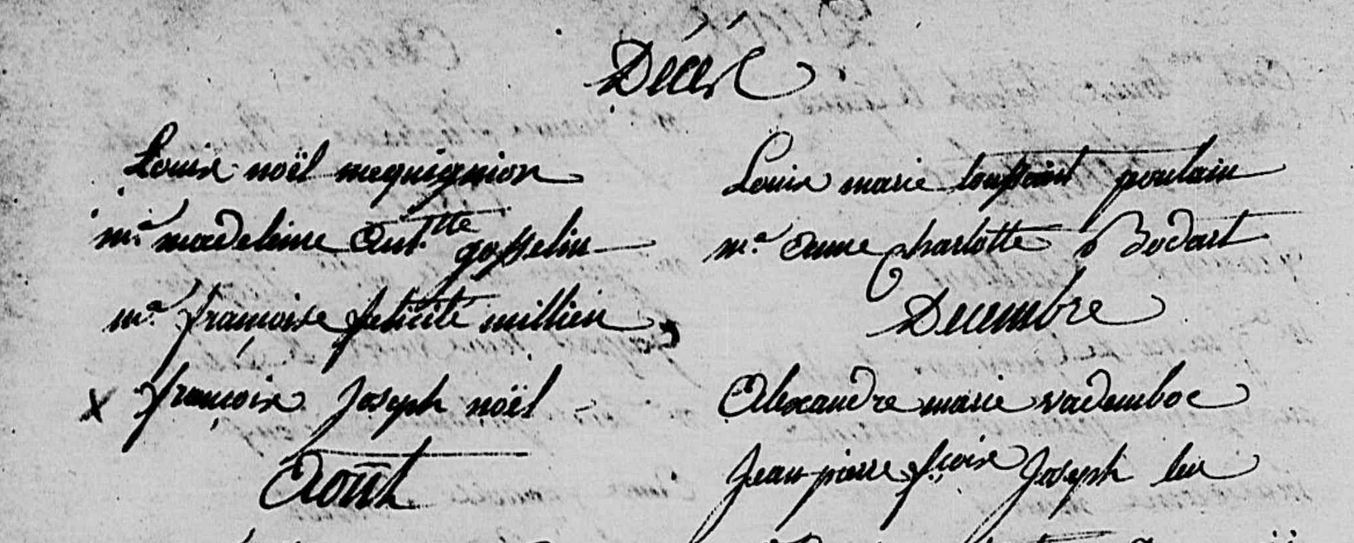 Décès
Louis noël mequignion
m.e madeleine Ant.tte gosselin
m.e françoise felicité millien
x françois Joseph noël
Aout
Louis marie toussaint poulain
m.e anne charlotte Bodart
Decembre
Alexandre marie vademboc
Jean pierre fçois Joseph leu